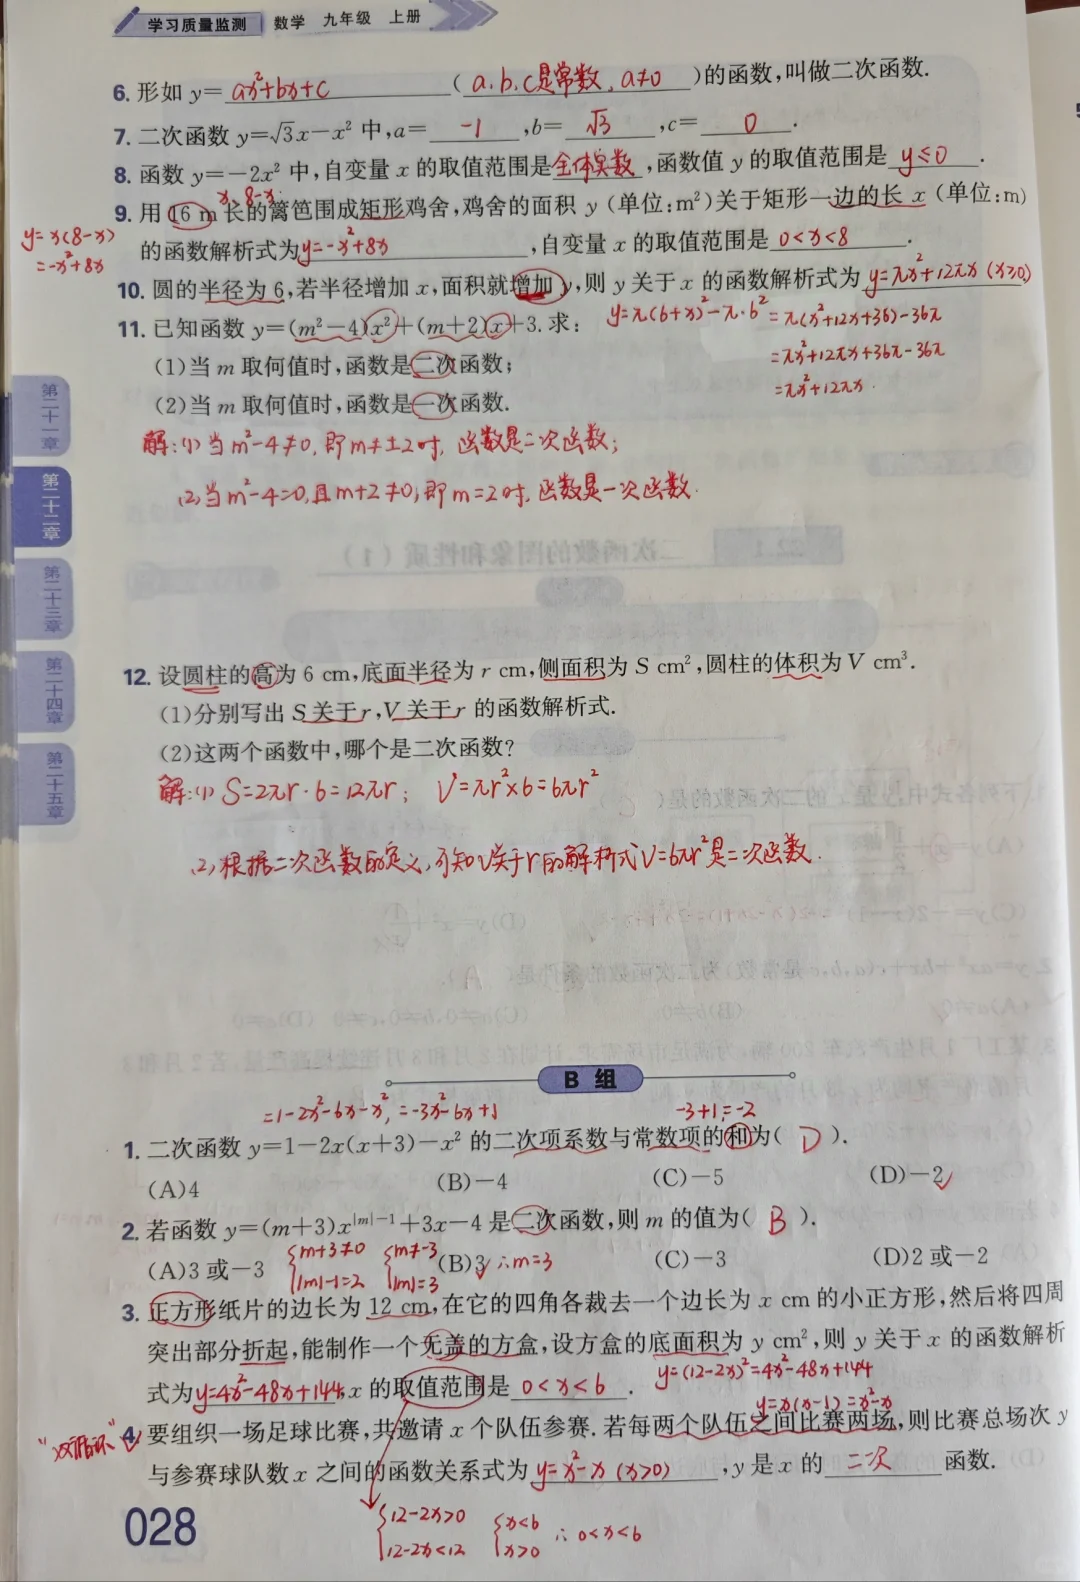 学习质量监测 数学 九年级 上册
6. 形如 y=ax²+bx+c(a.b.c是常数, a≠0)的函数,叫做二次函数.
7. 二次函数 y=√3x-x² 中,a= -1 ,b= √3 ,c= 0 .
8. 函数 y=-2x² 中,自变量 x 的取值范围是全体实数,函数值 y 的取值范围是 y≤0 .
x, 8-x.
9. 用 16 m 长的篱笆围成矩形鸡舍,鸡舍的面积 y (单位:m²)关于矩形一边的长 x (单位:m)
y=x(8-x)
=-x²+8x
的函数解析式为y=-x²+8x,自变量 x 的取值范围是 0<x<8 .
10. 圆的半径为 6,若半径增加 x,面积就增加 y,则 y 关于 x 的函数解析式为 y=πx²+12πx (x>0)
y=π(6+x)²-π·6²=π(x²+12x+36)-36π
=πx²+12πx+36π-36π
=πx²+12πx.
11. 已知函数 y=(m²-4)x²+(m+2)x+3. 求:
(1)当 m 取何值时,函数是二次函数;
(2)当 m 取何值时,函数是一次函数.
解:(1)当m²-4≠0,即m≠±2时,函数是二次函数;
(2)当m²-4=0,且m+2≠0,即m=2时,函数是一次函数.
第二十一章
第二十二章
第二十三章
第二十四章
第二十五章
12. 设圆柱的高为 6 cm,底面半径为 r cm,侧面积为 S cm²,圆柱的体积为 V cm³.
(1)分别写出 S 关于 r,V 关于 r 的函数解析式.
(2)这两个函数中,哪个是二次函数?
解:(1) S=2πr·6=12πr; V=πr²×6=6πr²
(2)根据二次函数的定义,可知V关于r的解析式V=6πr²是二次函数.
B 组
=1-2x²-6x-x²,=-3x²-6x+1
-3+1=-2
1. 二次函数 y=1-2x(x+3)-x² 的二次项系数与常数项的和为( D ).
(A)4 (B)-4 (C)-5 (D)-2
2. 若函数 y=(m+3)x^{|m|-1}+3x-4 是二次函数,则 m 的值为( B ).
(A)3 或-3 (B)3 (C)-3 (D)2 或-2
{m+3≠0 {m≠-3
|m|-1=2 |m|=3 ∴m=3
3. 正方形纸片的边长为 12 cm,在它的四角各裁去一个边长为 x cm 的小正方形,然后将四周
突出部分折起,能制作一个无盖的方盒,设方盒的底面积为 y cm²,则 y 关于 x 的函数解析
y=(12-2x)²=4x²-48x+144
式为y=4x²-48x+144,x 的取值范围是 0<x<6 .
y=x(x-1)=x²-x
"双循环"
4. 要组织一场足球比赛,共邀请 x 个队伍参赛. 若每两个队伍之间比赛两场,则比赛总场次 y
与参赛球队数 x 之间的函数关系式为 y=x²-x (x>0) ,y 是 x 的 二次 函数.
028
{12-2x>0 {x<6
12-2x<12 x>0 ∴0<x<6